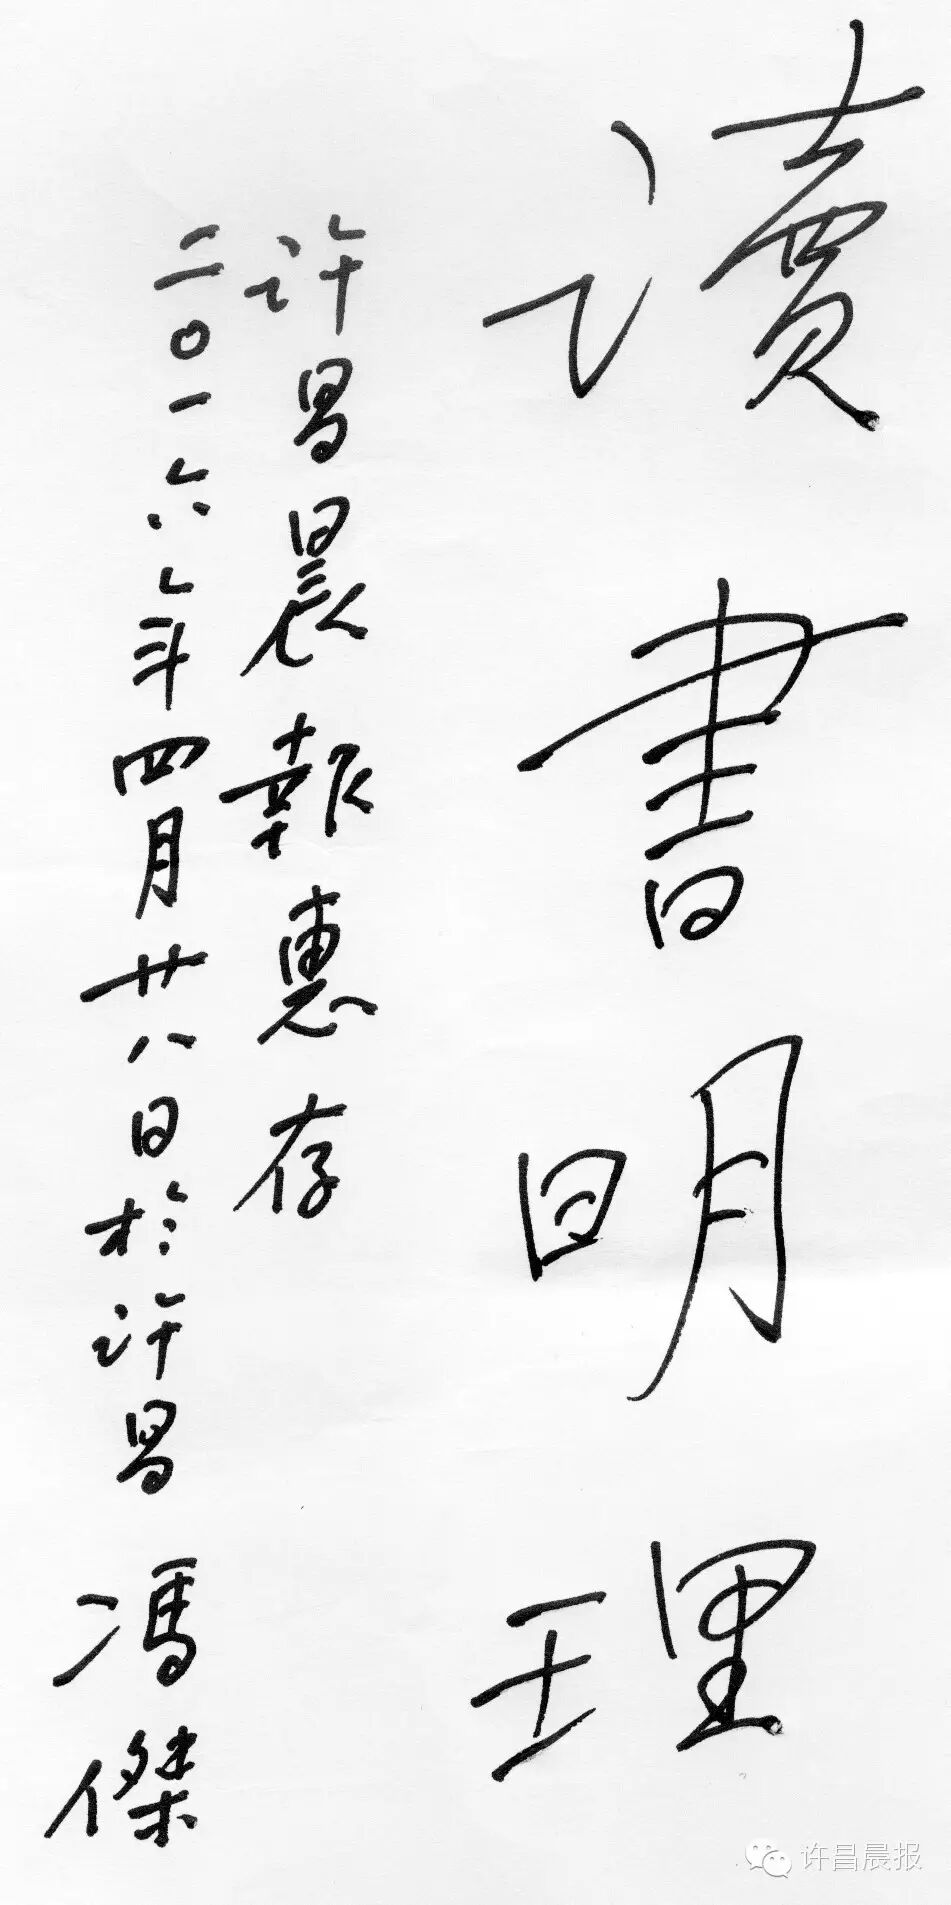 讀書明理
许昌晨報惠存
二〇一六年四月廿八日於许昌
馮傑
许昌晨报